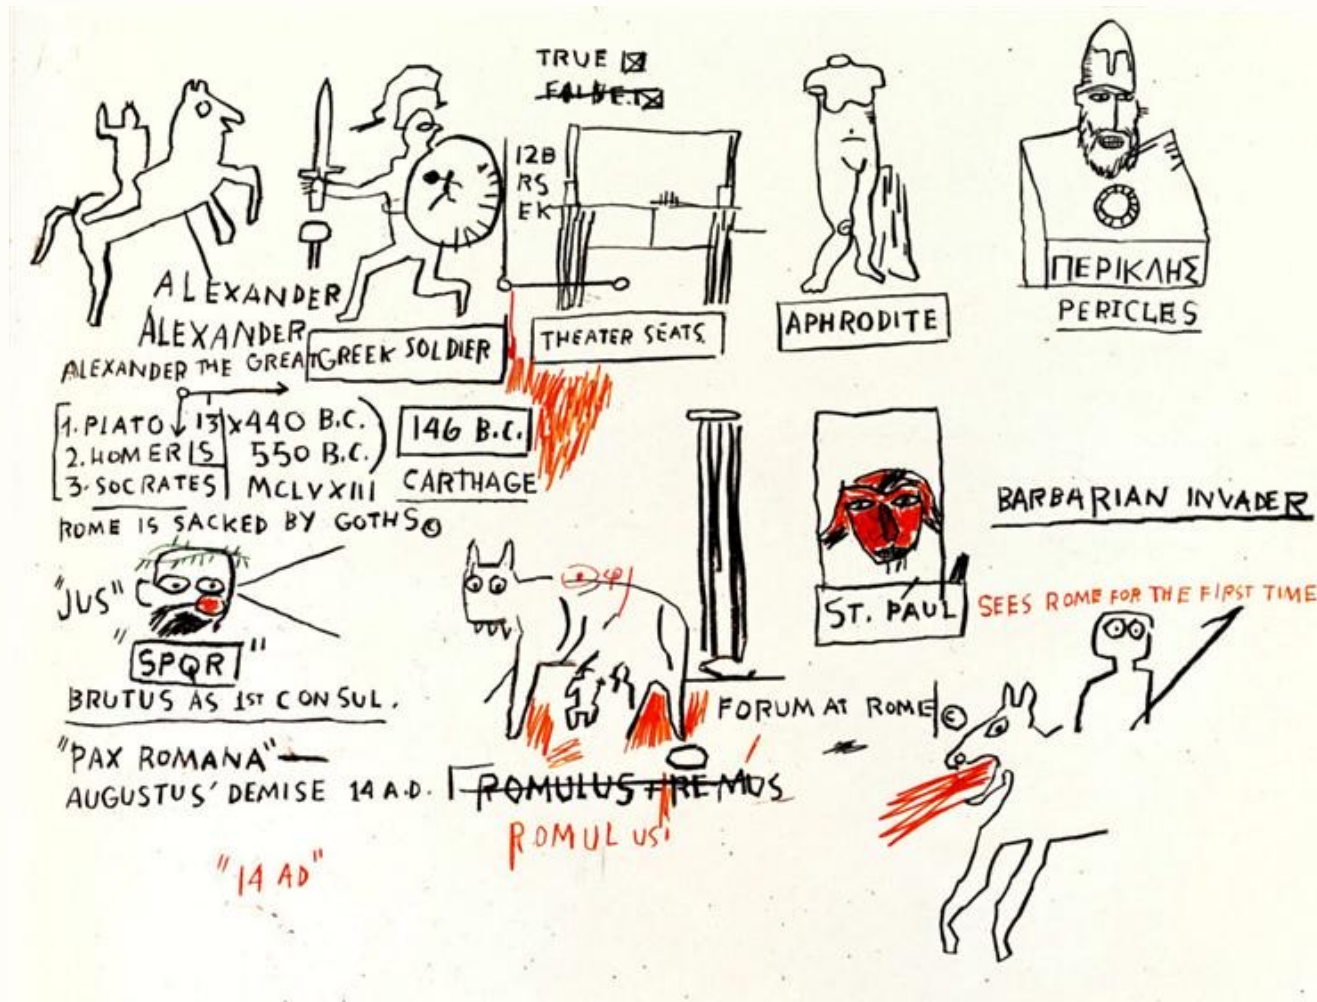 TRUE
FALSE.
12B
RS
EK
ALEXANDER
ALEXANDER
ALEXANDER THE GREAT
GREEK SOLDIER
THEATER SEATS.
APHRODITE
ΠΕΡΙΚΛΗΣ
PERICLES
1. PLATO 13 X 440 B.C.
2. HOMER IS 550 B.C.
3. SOCRATES MCLVXIII
146 B.C.
CARTHAGE
ROME IS SACKED BY GOTHS ©
"JUS"
"SPQR"
BRUTUS AS 1ST CONSUL.
"PAX ROMANA"
AUGUSTUS' DEMISE 14 A.D.
"14 AD"
ROMULUS + REMUS
ROMULUS
FORUM AT ROME ©
ST. PAUL
BARBARIAN INVADER
SEES ROME FOR THE FIRST TIME